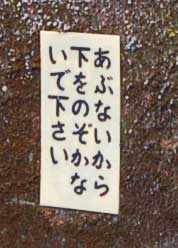 あぶないから
下をのぞかな
いで下さい